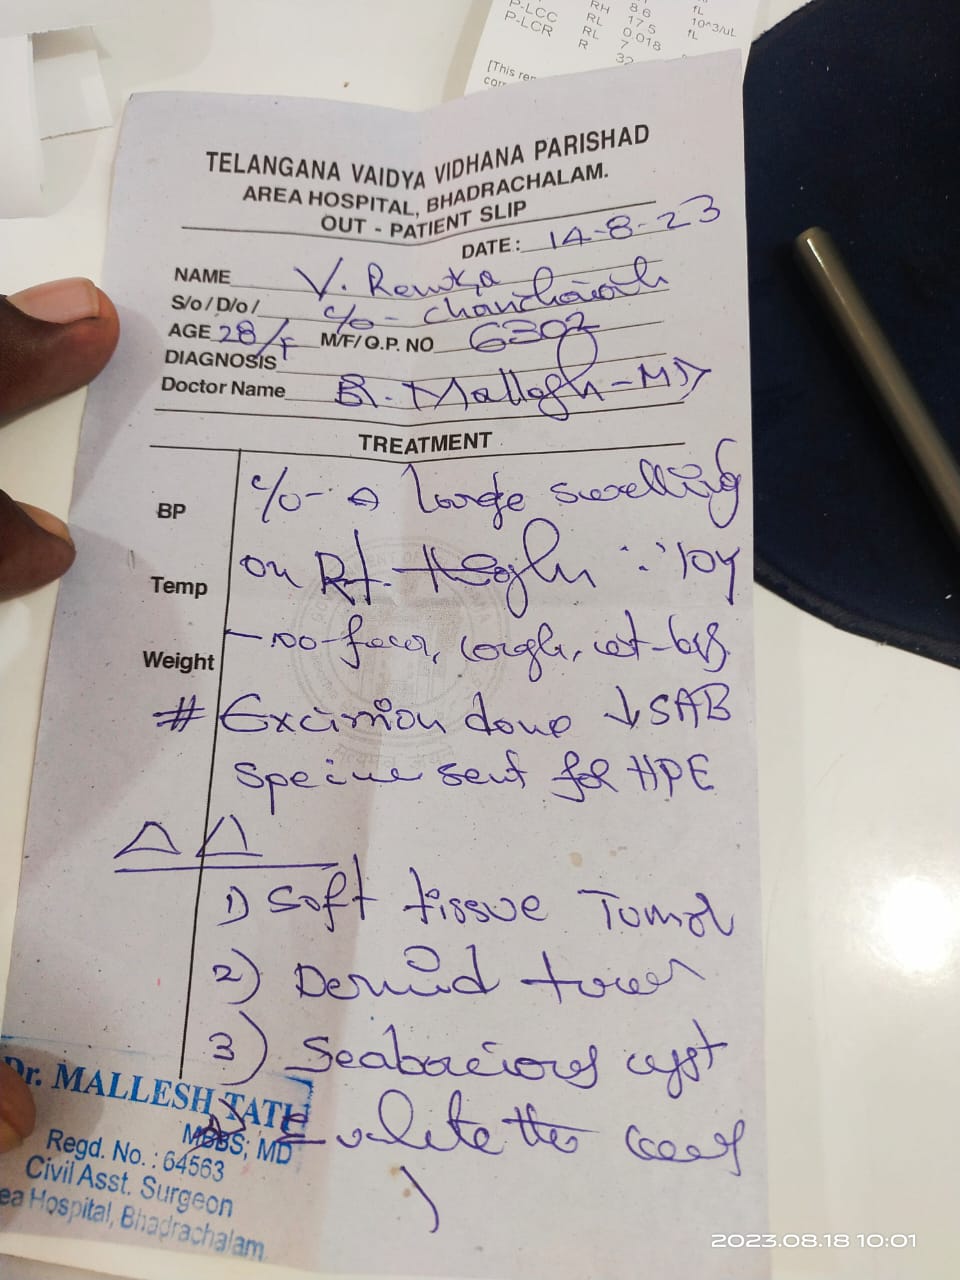 P-LCC RH 8.6 fL
P-LCR RL 17.5 10^3/uL
RL 0.018 fL
R 7
32
[This rep
corr
TELANGANA VAIDYA VIDHANA PARISHAD
AREA HOSPITAL, BHADRACHALAM.
OUT - PATIENT SLIP
DATE: 14-8-23
NAME V. Renuka
S/o / D/o / c/o -
AGE 28/F M/F/ O.P. NO 6302
DIAGNOSIS
Doctor Name - MD
TREATMENT
BP
c/o - A large swelling
on Rt. thigh : 10y
Temp
- no fever, cough,
Weight
# Excision done ↓ SAB
specime sent for HPE
△△
1) Soft tissue Tumor
2) Dermid
3) Seabacious cyst
Dr. MALLESH TATI
MBBS; MD
Regd. No. : 64563
Civil Asst. Surgeon
ea Hospital, Bhadrachalam
2023.08.18 10:01